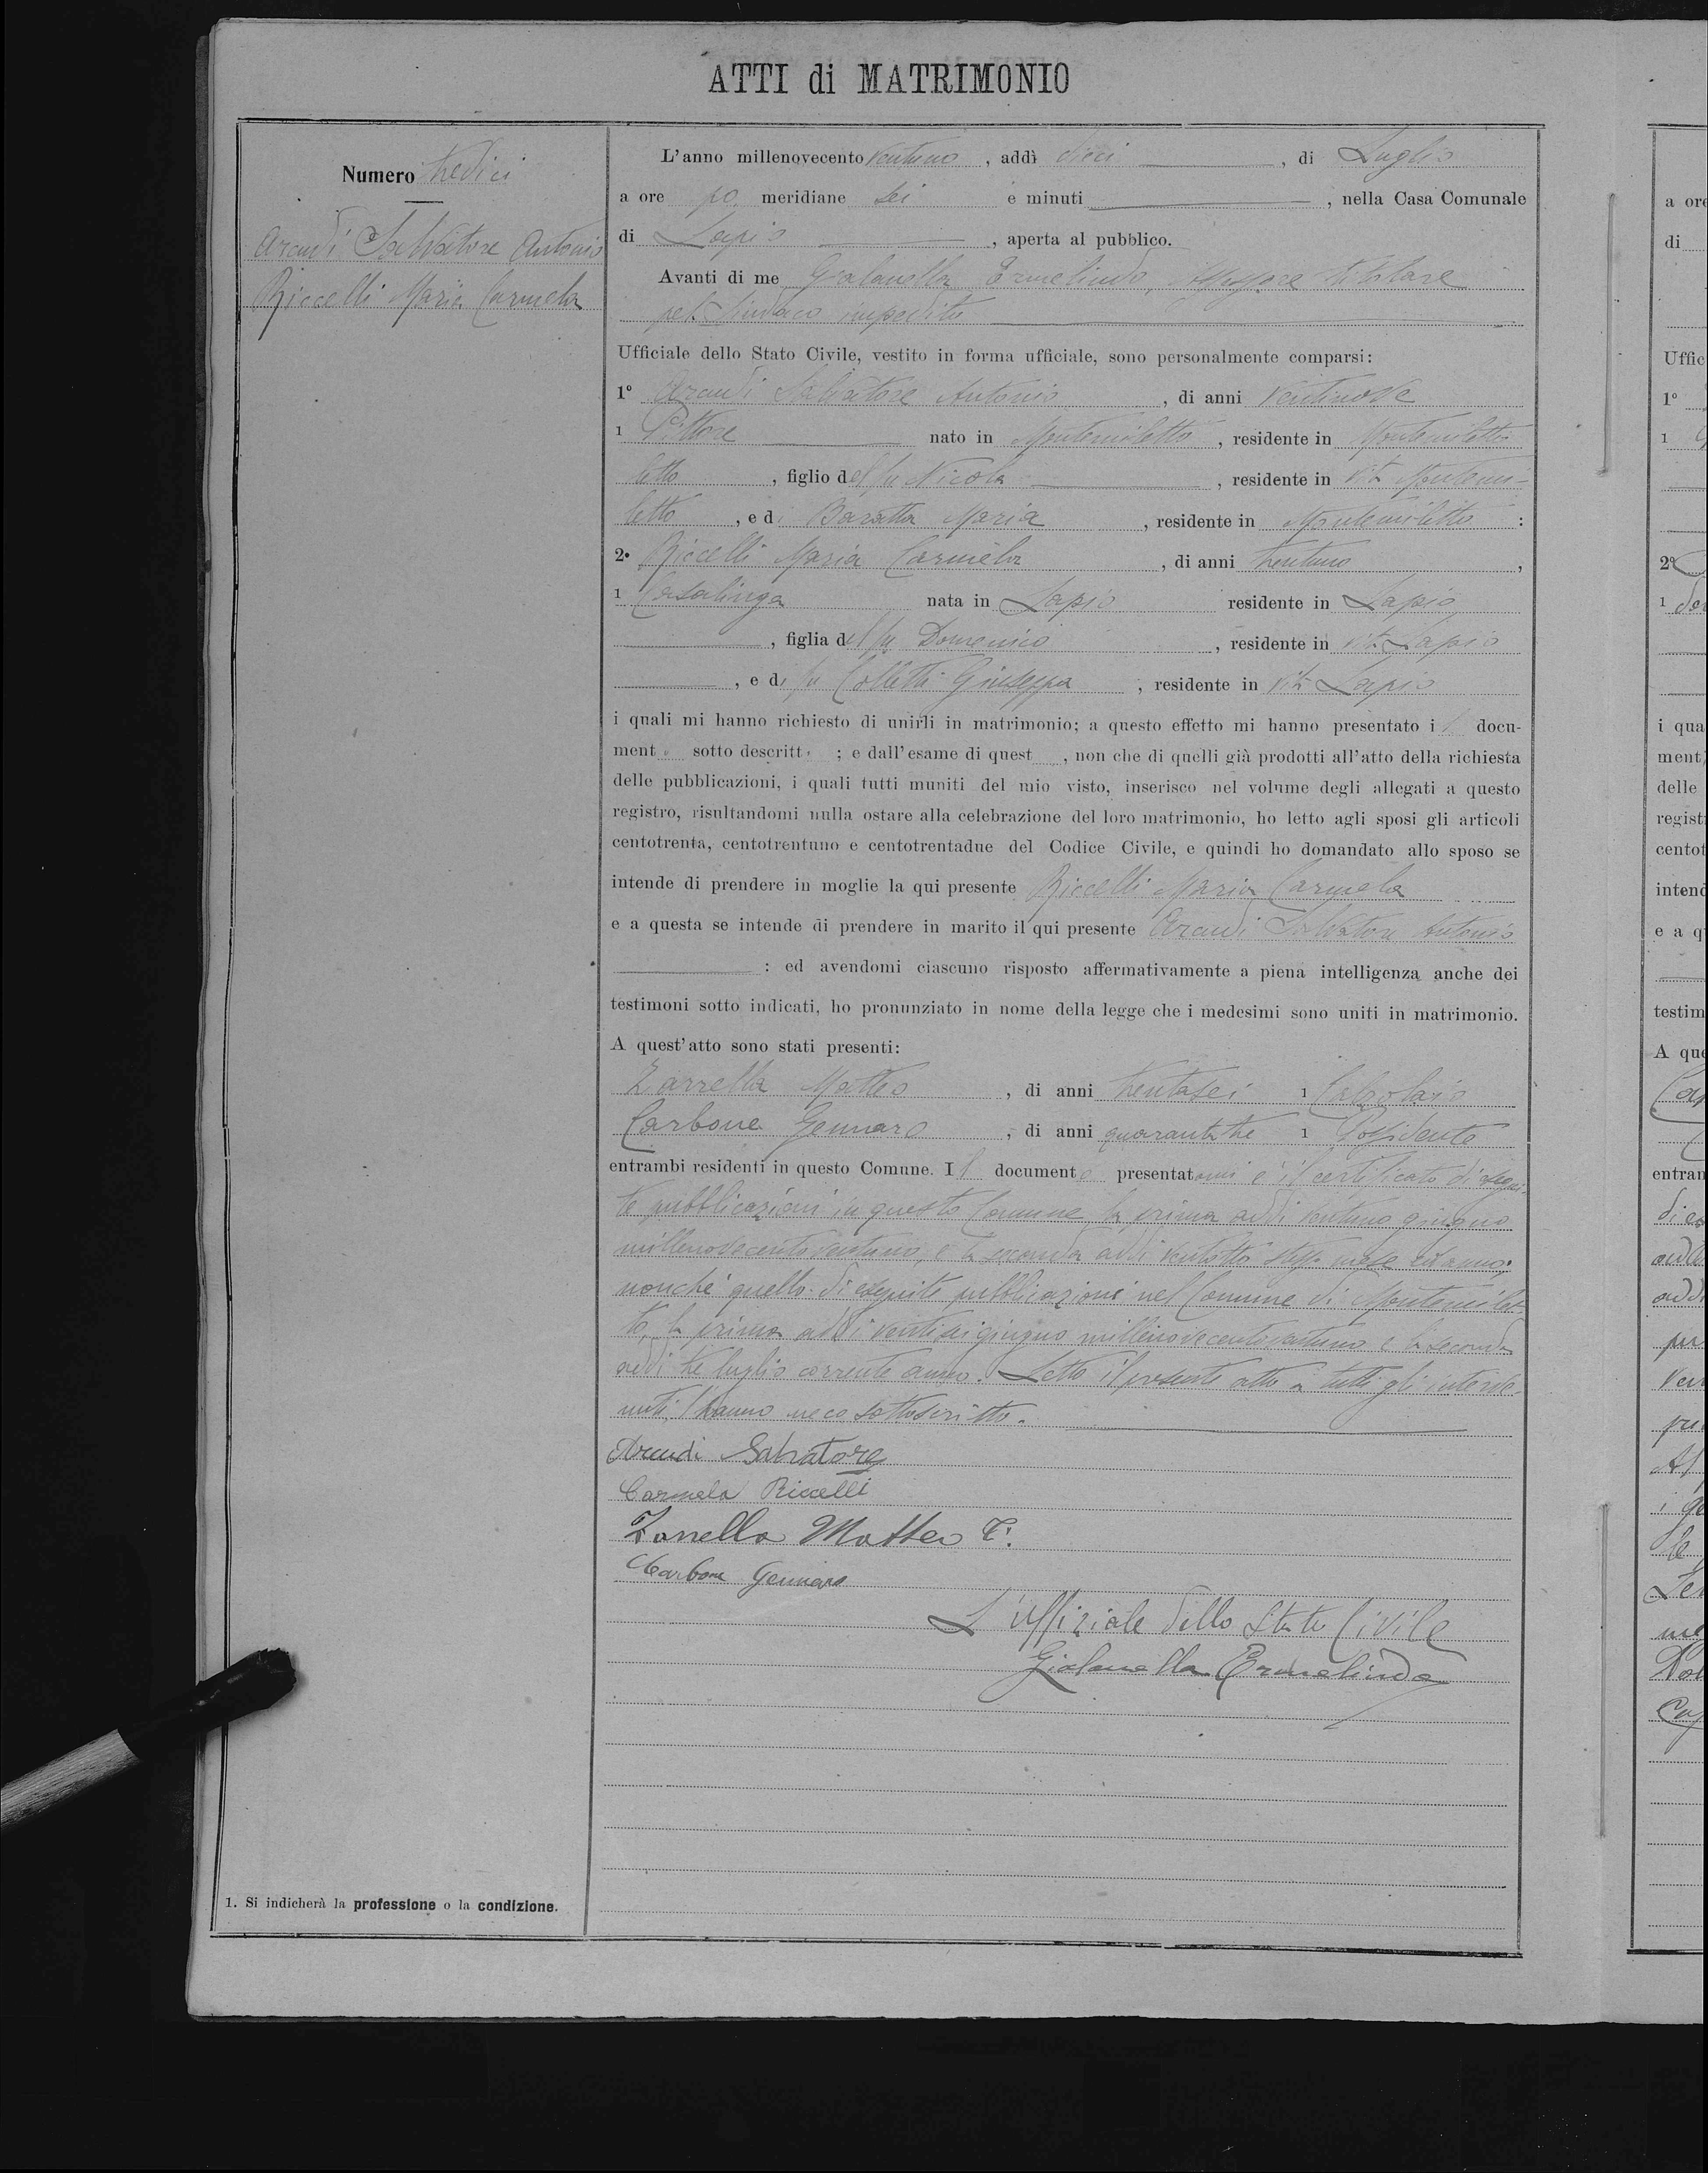 ATTI di MATRIMONIO
Numero tredici
Arcudi Salvatore Antonio
Riccelli Maria Carmela
1. Si indicherà la professione o la condizione.
L'anno millenovecento ventuno, addì dieci, di Luglio
a ore po meridiane sei e minuti, nella Casa Comunale
di Lapio, aperta al pubblico.
Avanti di me Gialanella Ermelindo, Assessore titolare
pel Sindaco impedito
Ufficiale dello Stato Civile, vestito in forma ufficiale, sono personalmente comparsi:
1° Arcudi Salvatore Antonio, di anni ventinove
1 Pittore nato in Montemiletto, residente in Montemiletto
letto, figlio del fu Nicola, residente in vita Montemi-
letto, e di Baratta Maria, residente in Montemiletto:
2° Riccelli Maria Carmela, di anni trentuno,
1 Casalinga nata in Lapio residente in Lapio
, figlia del fu Domenico, residente in vita Lapio
, e di fu Colletti Giuseppa, residente in vita Lapio
i quali mi hanno richiesto di unirli in matrimonio; a questo effetto mi hanno presentato il docu-
mento sotto descritto; e dall'esame di quest, non che di quelli già prodotti all'atto della richiesta
delle pubblicazioni, i quali tutti muniti del mio visto, inserisco nel volume degli allegati a questo
registro, risultandomi nulla ostare alla celebrazione del loro matrimonio, ho letto agli sposi gli articoli
centotrenta, centotrentuno e centotrentadue del Codice Civile, e quindi ho domandato allo sposo se
intende di prendere in moglie la qui presente Riccelli Maria Carmela
e a questa se intende di prendere in marito il qui presente Arcudi Salvatore Antonio
: ed avendomi ciascuno risposto affermativamente a piena intelligenza anche dei
testimoni sotto indicati, ho pronunziato in nome della legge che i medesimi sono uniti in matrimonio.
A quest'atto sono stati presenti:
Zarrella Matteo, di anni trentasei 1 Calzolaio
Carbone Gennaro, di anni quarantatre 1 Possidente
entrambi residenti in questo Comune. Il documento presentatomi è il certificato di esegui-
te pubblicazioni in questo Comune la prima addì ventuno giugno
millenovecentoventuno, e la seconda addì ventotto stesso mese ed anno;
nonché quello di eseguite pubblicazioni nel Comune di Montemilet-
to, la prima addì ventisei giugno millenovecentoventuno e la seconda
addì tre luglio corrente anno. Letto il presente atto a tutti gli interve-
nuti, l'hanno meco sottoscritto.
Arcudi Salvatore
Carmela Riccelli
Zarrella Matteo T.
Carbone Gennaro
L'uffiziale dello Stato Civile
Gialanella Ermelindo